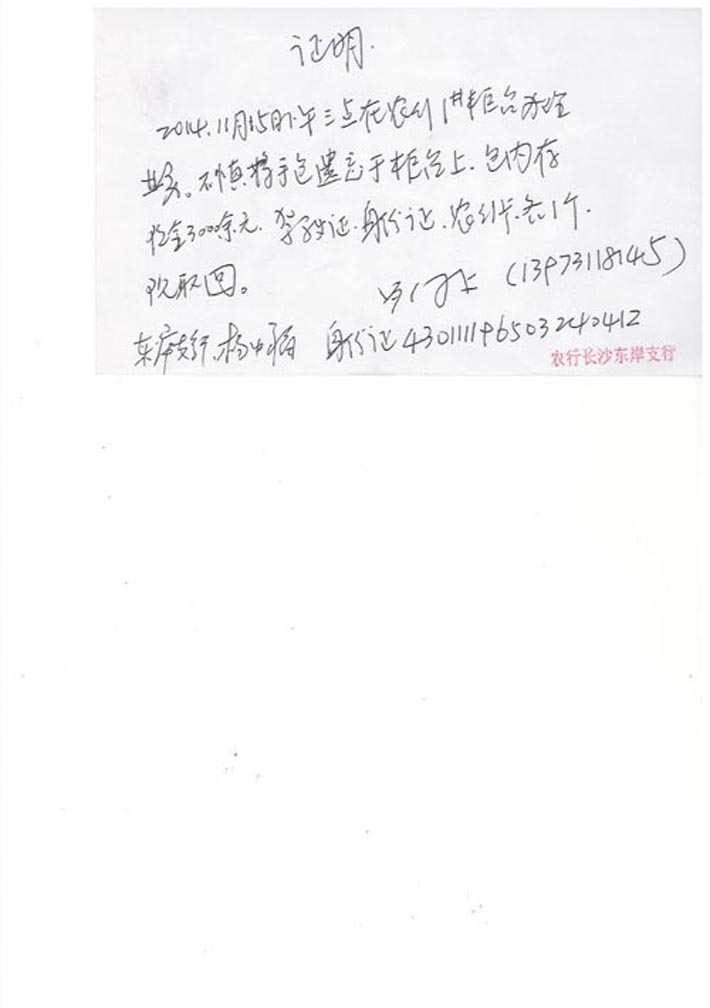 证明.
2014.11月15日下午三点在农行1#柜台办理
业务。不慎将手包遗忘于柜台上.包内存
现金3000余元.驾驶证.身份证.农行卡.各1个.
现取回。
(13973118145)
东岸支行.杨 身份证430111196503240412
农行长沙东岸支行